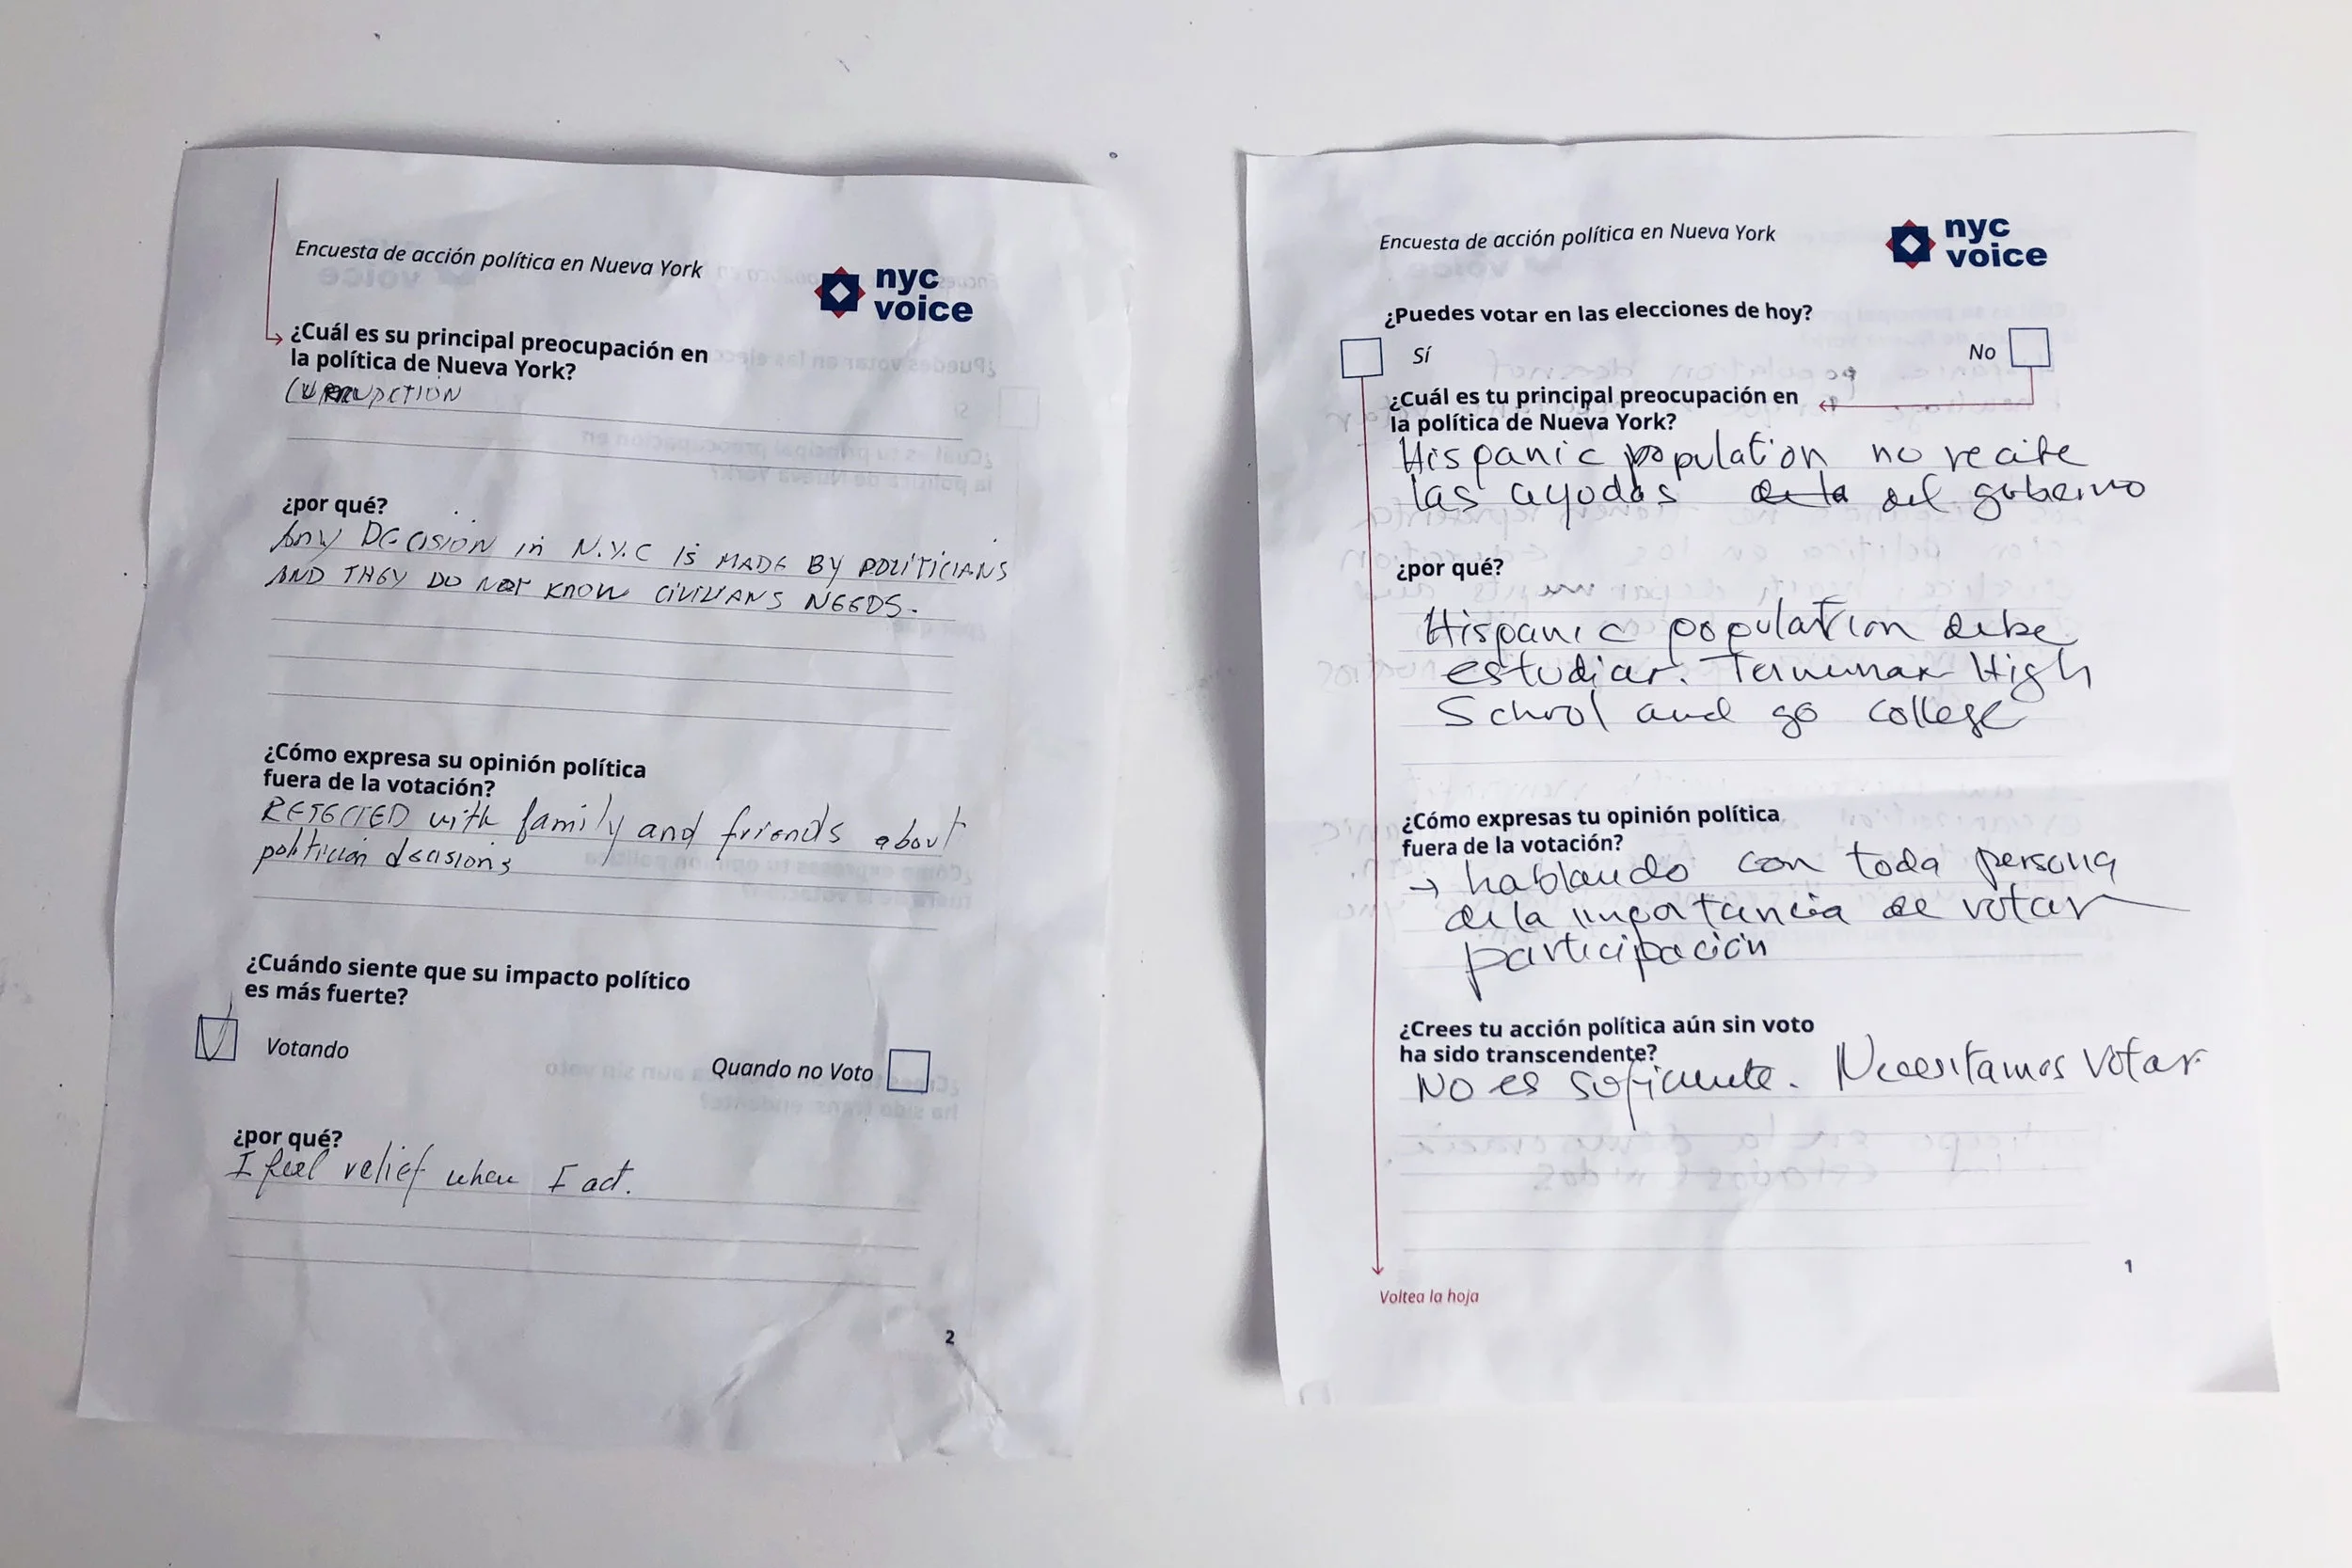 Encuesta de acción política en Nueva York
nyc
voice
¿Cuál es su principal preocupación en
la política de Nueva York?
¿por qué?
Any DECISION in N.Y.C IS MADE BY POLITICIANS
AND THEY DO NOT KNOW CIVILIANS NEEDS.
¿Cómo expresa su opinión política
fuera de la votación?
REJECTED with family and friends about
politician decisions
¿Cuándo siente que su impacto político
es más fuerte?
Votando
Quando no Voto
¿por qué?
I feel relief when I act.
2
Encuesta de acción política en Nueva York
nyc
voice
¿Puedes votar en las elecciones de hoy?
Sí
No
¿Cuál es tu principal preocupación en
la política de Nueva York?
Hispanic population no recibe
las ayudas del gobierno
¿por qué?
Hispanic population debe
estudiar. Terminar High
School and go college
¿Cómo expresas tu opinión política
fuera de la votación?
→ hablando con toda persona
de la importancia de votar
participación
¿Crees tu acción política aún sin voto
ha sido transcendente?
No es suficiente. Necesitamos votar
1
Voltea la hoja